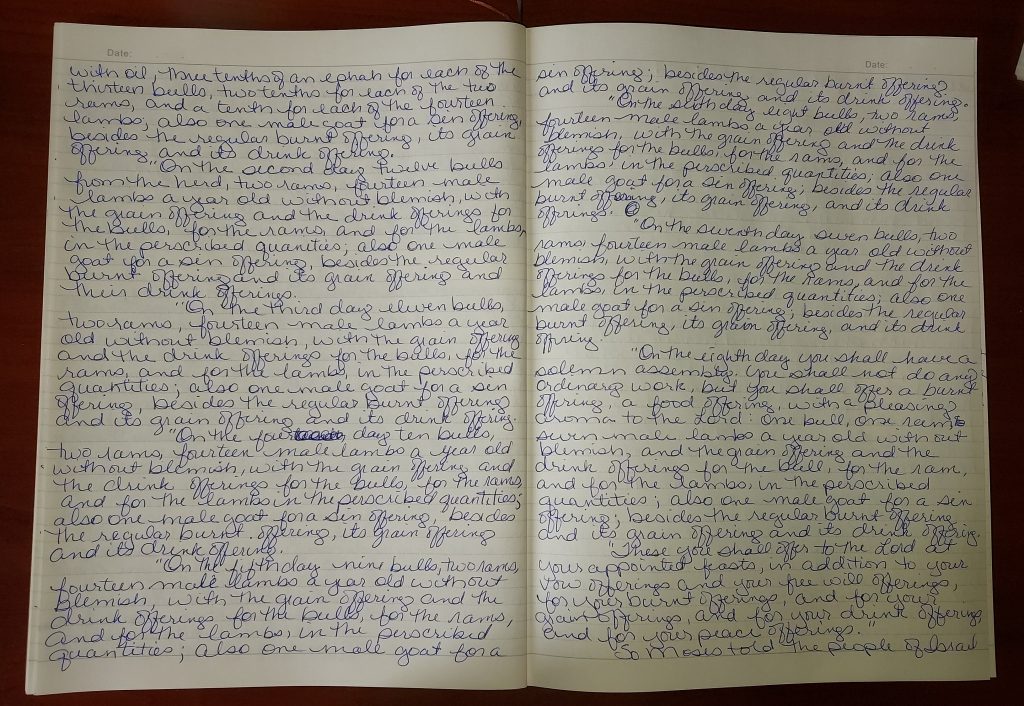 Date:
with oil, three tenths of an ephah for each of the
thirteen bulls, two tenths for each of the two
rams, and a tenth for each of the fourteen
lambs; also one male goat for a sin offering,
besides the regular burnt offering, its grain
offering, and its drink offering.
"On the second day twelve bulls
from the herd, two rams, fourteen male
lambs a year old without blemish, with
the grain offering and the drink offerings for
the bulls, for the rams, and for the lambs,
in the perscribed quanities; also one male
goat for a sin offering, besides the regular
burnt offering and its grain offering and
their drink offerings.
"On the third day eleven bulls,
two rams, fourteen male lambs a year
old without blemish, with the grain offering
and the drink offerings for the bulls, for the
rams, and for the lambs, in the perscribed
quantities; also one male goat for a sin
offering, besides the regular burnt offering
and its grain offering and its drink offering.
"On the four day ten bulls,
two rams, fourteen male lambs a year old
without blemish, with the grain offering and
the drink offerings for the bulls, for the rams,
and for the lambs in the perscribed quantities;
also one male goat for a sin offering, besides
the regular burnt offering, its grain offering
and its drink offering.
"On the fifth day nine bulls, two rams,
fourteen male lambs a year old without
blemish, with the grain offering and the
drink offerings for the bulls, for the rams,
and for the lambs, in the perscribed
quantities; also one male goat for a
Date:
sin offering; besides the regular burnt offering
and its grain offering and its drink offering.
"On the sixth day eight bulls, two rams,
fourteen male lambs a year old without
blemish, with the grain offering and the drink
offerings for the bulls, for the rams, and for the
lambs in the perscribed quantities; also one
male goat for a sin offering; besides the regular
burnt offering, its grain offering, and its drink
offerings.
"On the seventh day seven bulls, two
rams, fourteen male lambs a year old without
blemish, with the grain offering and the drink
offerings for the bulls, for the rams, and for the
lambs in the perscribed quantities; also one
male goat for a sin offering; besides the regular
burnt offering, its grain offering, and its drink
offering.
"On the eighth day you shall have a
solemn assembly. You shall not do any
ordinary work, but you shall offer a burnt
offering, a food offering, with a pleasing
aroma to the Lord: one bull, one ram,
seven male lambs a year old without
blemish, and the grain offering and the
drink offerings for the bull, for the ram,
and for the lambs, in the perscribed
quantities; also one male goat for a sin
offering; besides the regular burnt offering
and its grain offering and its drink offering.
"These you shall offer to the Lord at
your appointed feasts, in addition to your
vow offerings and your free will offerings,
for your burnt offerings, and for your
grain offerings, and for your drink offerings,
and for your peace offerings."
So Moses told the people of Israel